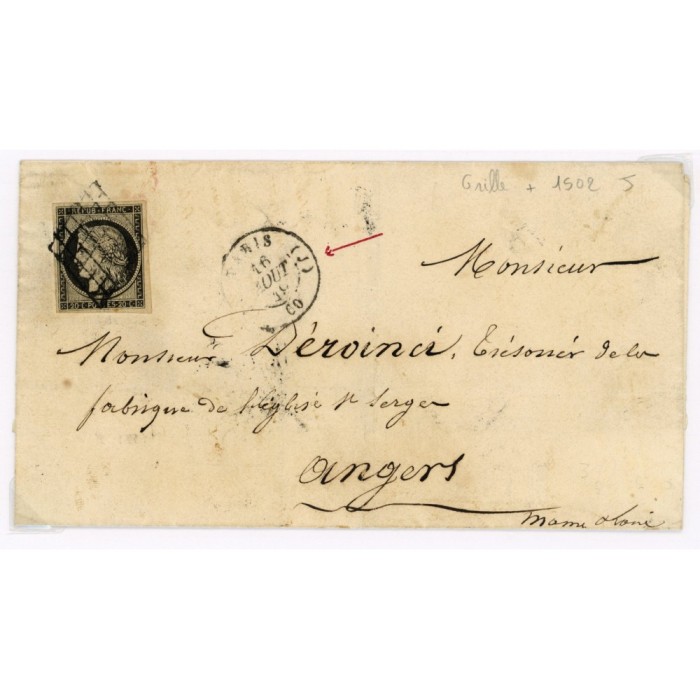 Grille + 1502 J
REPUB. FRANC.
20 C POSTES 20 C
PARIS (J)
16
AOUT
Monsieur
Monsieur Déroinci, Trésorier de la
fabrique de l'Eglise St Serge
angers
Maine & Loire